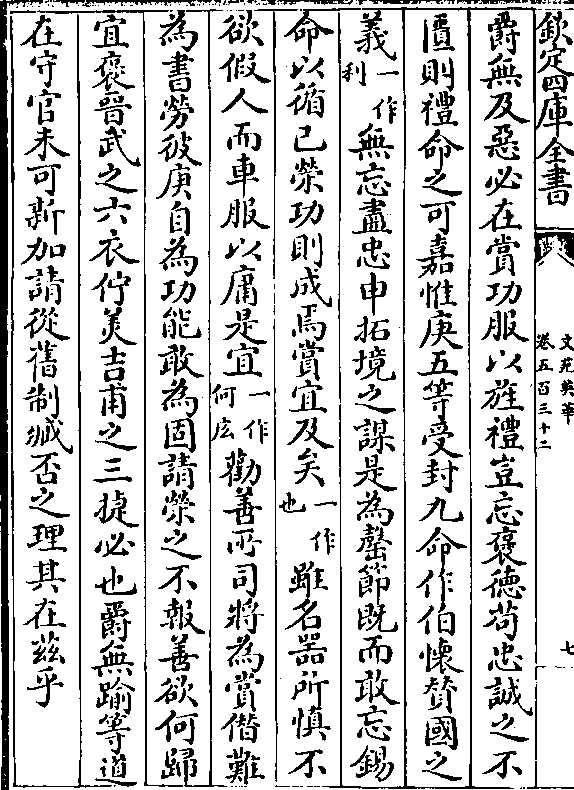 欽定四庫全書
文苑英華
卷五百三十二
七
爵無及惡必在賞功服以旌禮豈忘褒德苟忠誠之不
匱則禮命之可嘉惟庚五等受封九命作伯懷賛國之
義一作利無忘盡忠申拓境之謀是為罄節既而敢忘錫
命以循已榮功則成焉賞宜及矣一作也雖名器所慎不
欲假人而車服以庸是宜一作何庅勸善所司將為賞僣難
為書勞彼庚自為功能敢為固請榮之不報善欲何歸
宜褒晉武之六衣佇美吉甫之三捷必也爵無踰等道
在守官未可新加請從舊制臧否之理其在兹乎